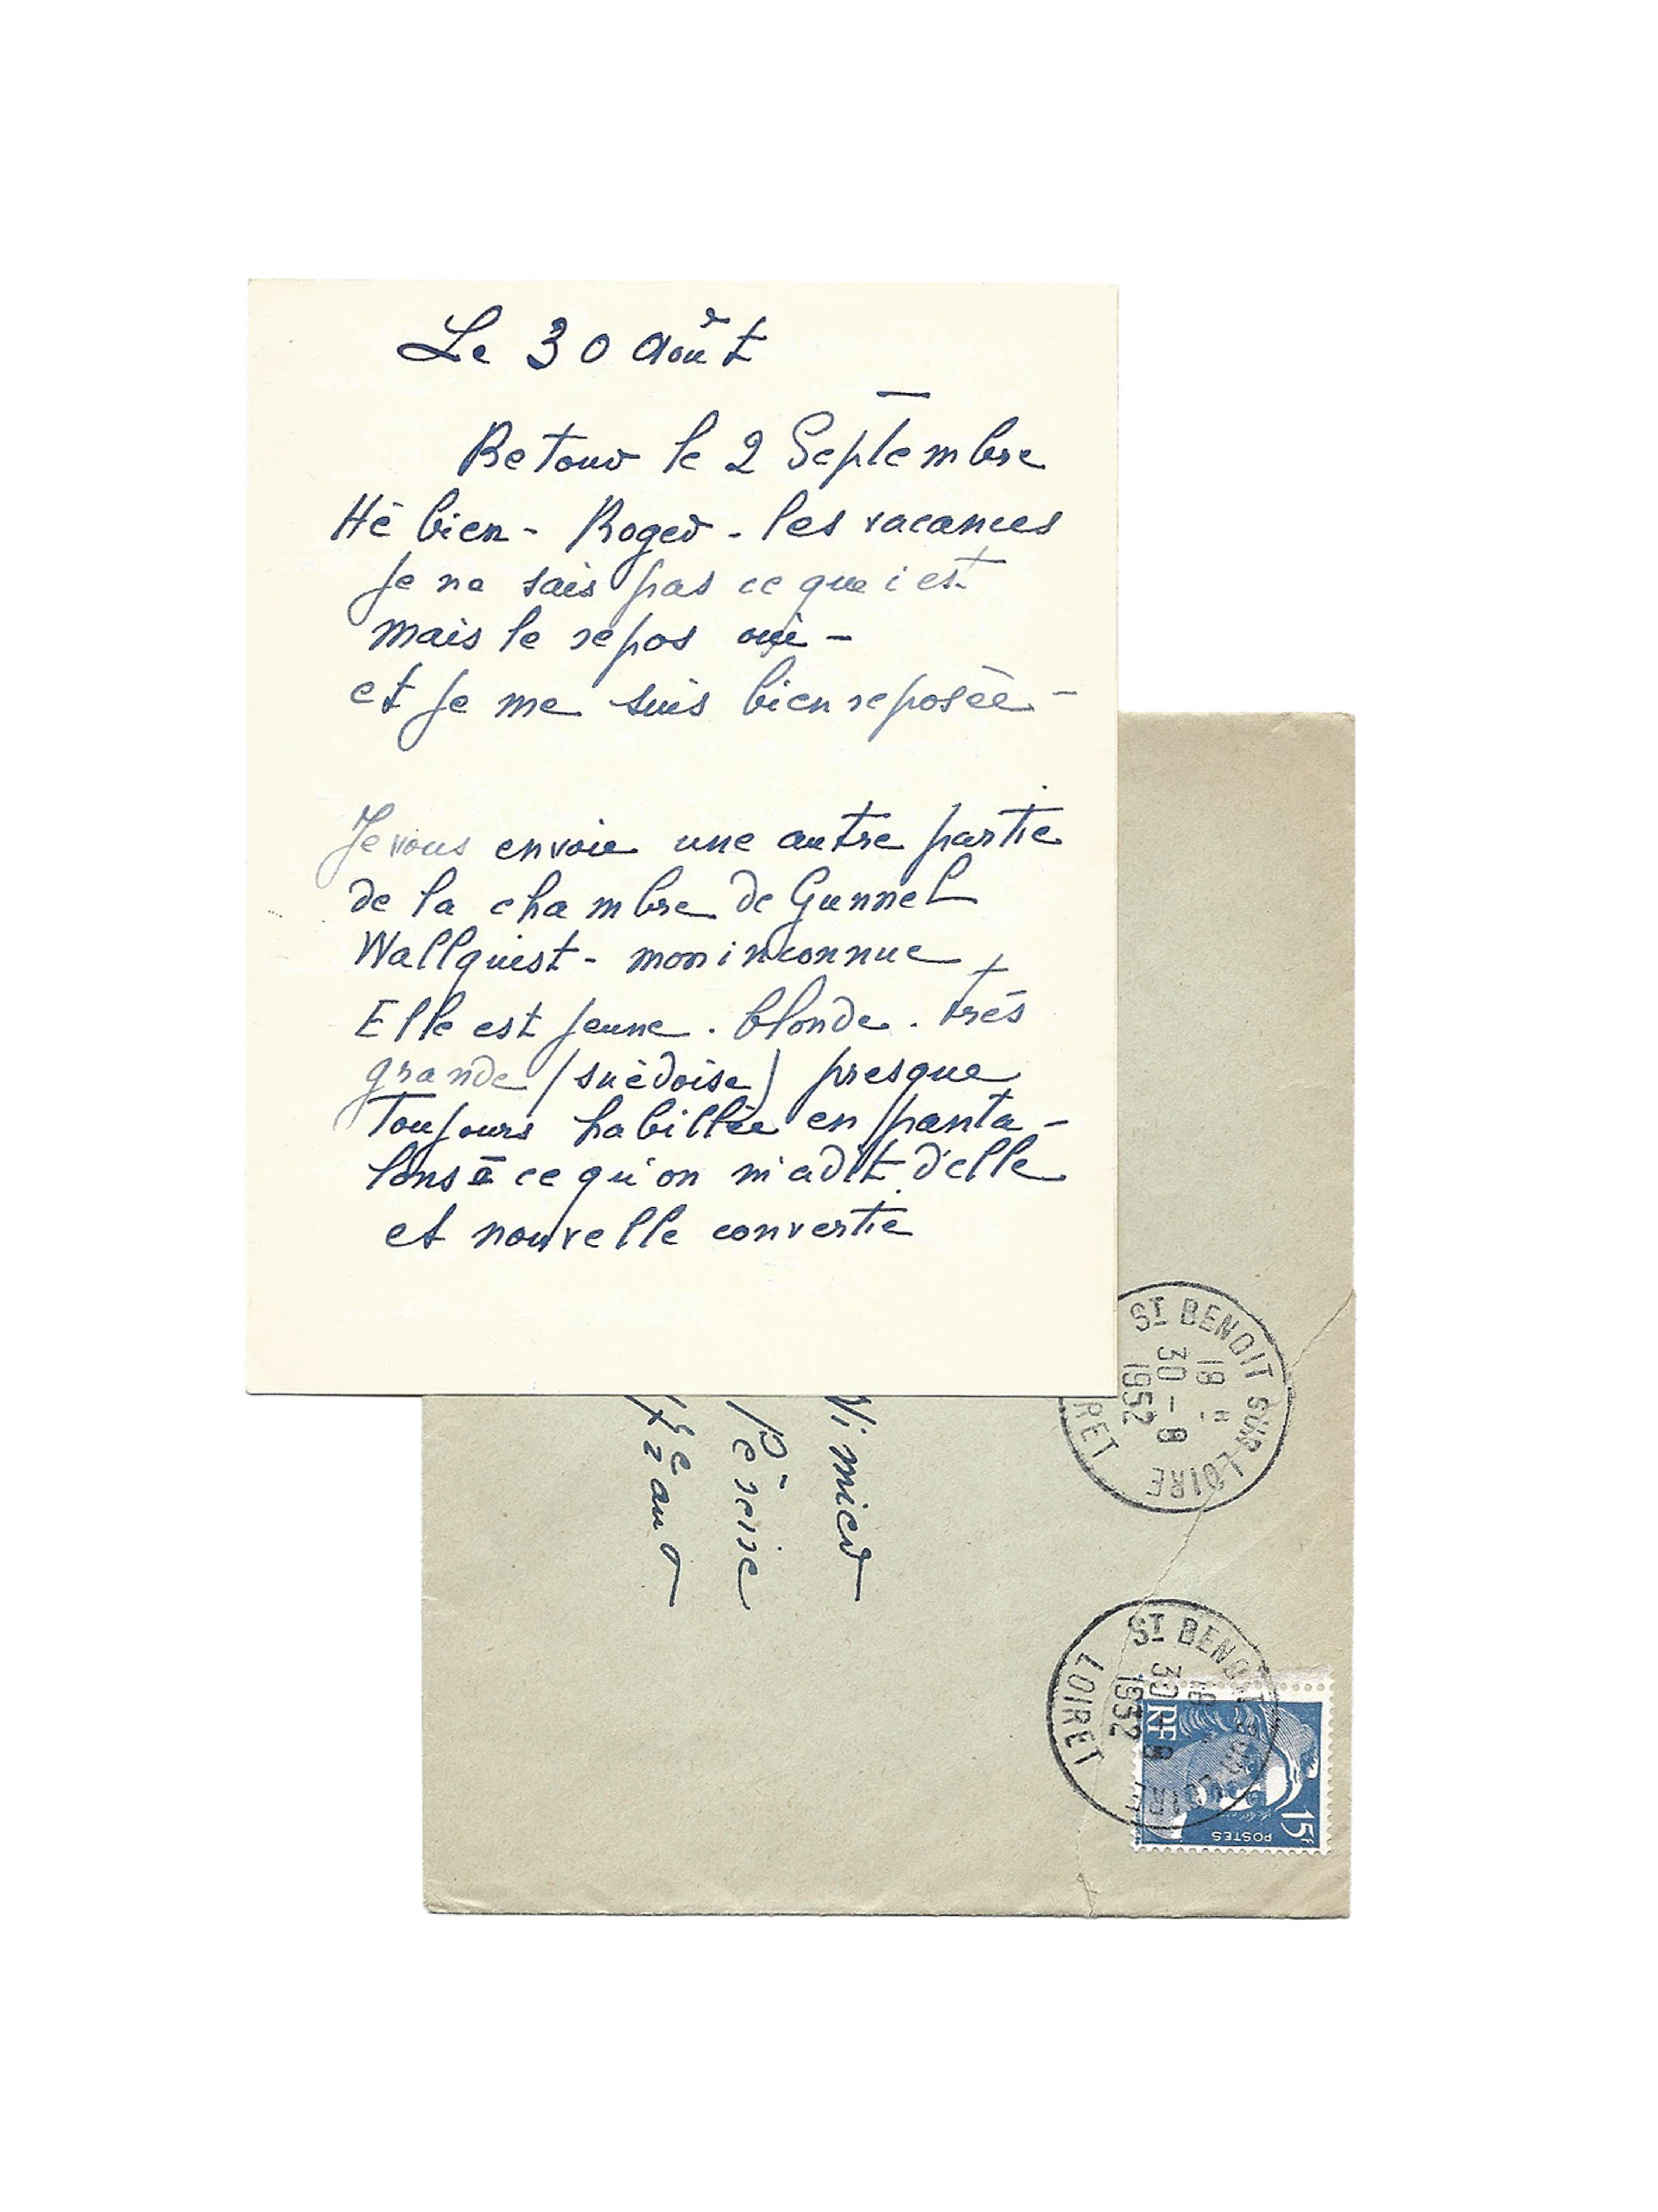 Le 30 Août
Retour le 2 Septembre
Hé bien - Roger - les vacances
Je ne sais pas ce que c est
mais le repos oui -
et je me suis bien reposée -
Je vous envoie une autre partie
de la chambre de Gunnel
Wallquist - mon inconnue
Elle est jeune. blonde. très
grande (suédoise) presque
Toujours habillée en panta-
lons à ce qu'on m'a dit d'elle
et nouvelle convertie
ST BENOIT SUR LOIRE
18 H
30 - 8
1952
RET
Vimier
Péreire
ST BENOIT SUR LOIRE
18
30 - 8
1952
LOIRET
RF
POSTES
15F